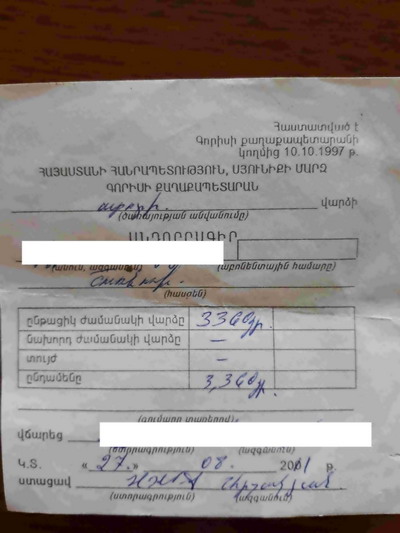 Հաստատված է
Գորիսի քաղաքապետարանի
կողմից 10.10.1997 թ.
ՀԱՅԱՍՏԱՆԻ ՀԱՆՐԱՊԵՏՈՒԹՅՈՒՆ, ՍՅՈՒՆԻՔԻ ՄԱՐԶ
ԳՈՐԻՍԻ ՔԱՂԱՔԱՊԵՏԱՐԱՆ
վարձի
(ծառայության անվանումը)
ԱՆԴՈՐՐԱԳԻՐ
(անուն, ազգանուն) (աբոնենտային համարը)
(հասցեն)
ընթացիկ ժամանակի վարձը 3360դր.
նախորդ ժամանակի վարձը —
տույժ —
ընդամենը 3,360դր.
(գումարը տառերով)
վճարեց
(ստորագրություն) (ազգանուն)
Կ.Տ. « 27. » 08. 2011 թ.
ստացավ
(ստորագրություն) (ազգանուն)